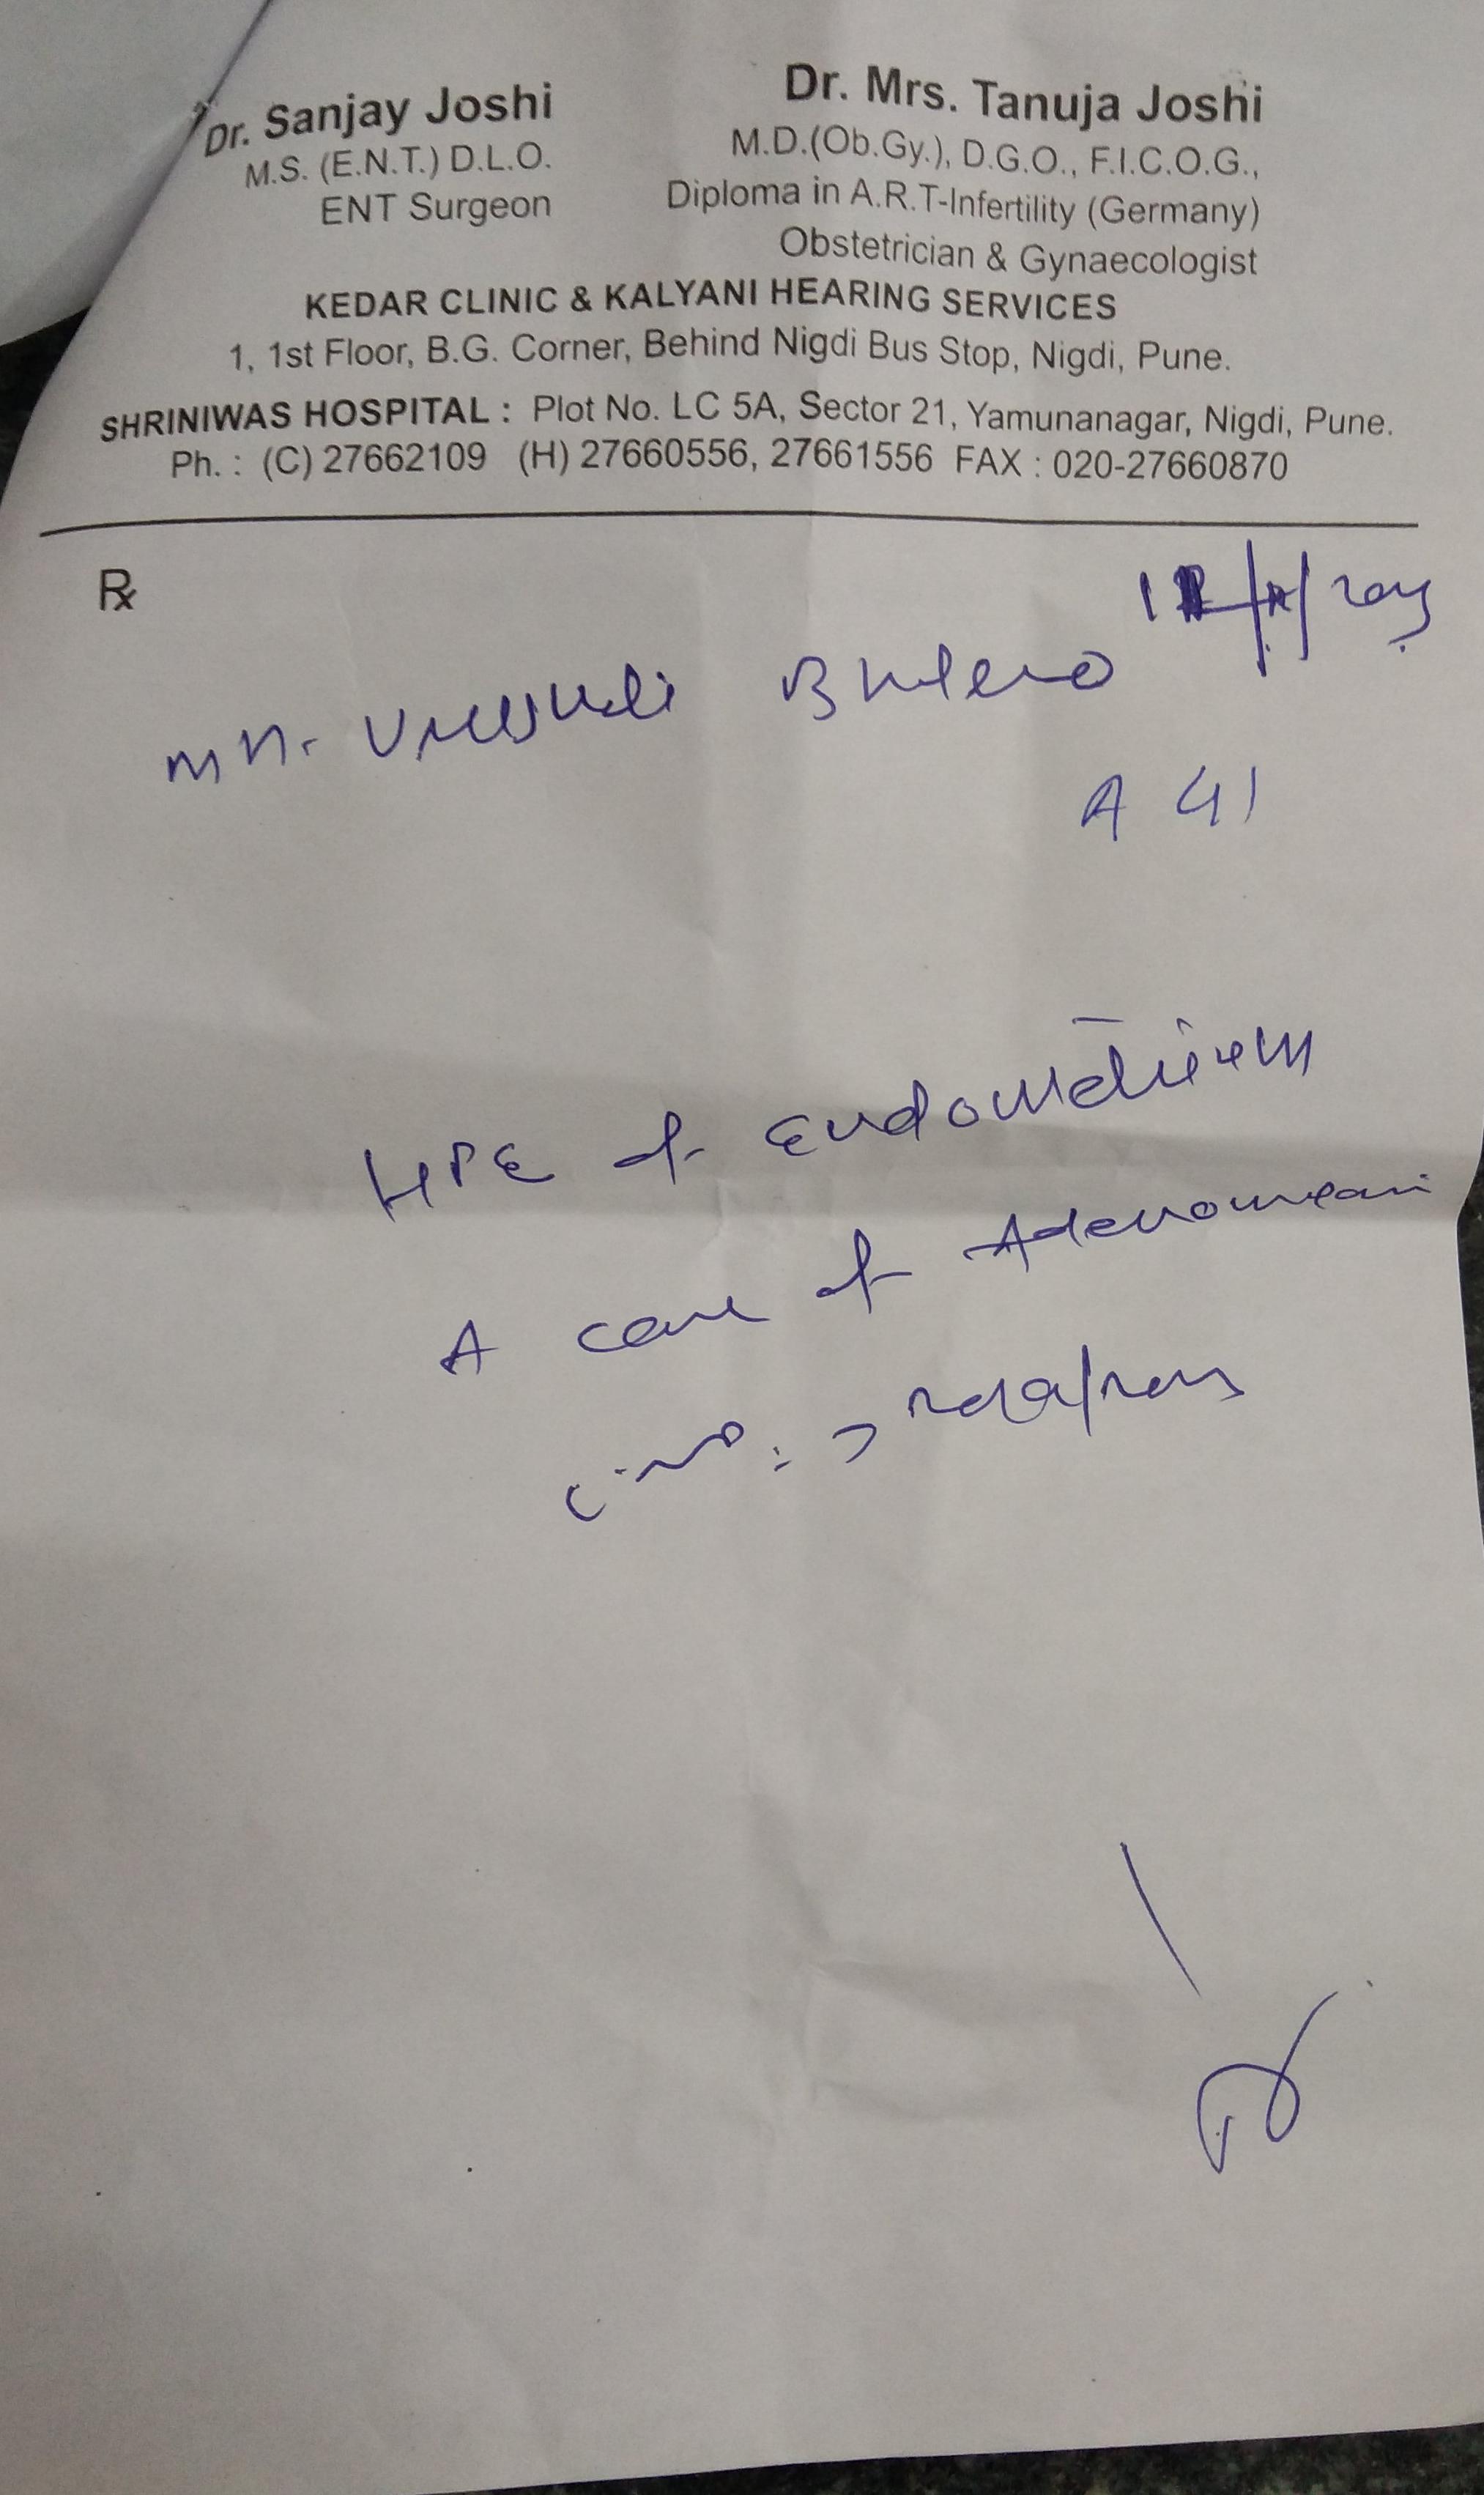 Dr. Sanjay Joshi
M.S. (E.N.T.) D.L.O.
ENT Surgeon
Dr. Mrs. Tanuja Joshi
M.D.(Ob.Gy.), D.G.O., F.I.C.O.G.,
Diploma in A.R.T-Infertility (Germany)
Obstetrician & Gynaecologist
KEDAR CLINIC & KALYANI HEARING SERVICES
1, 1st Floor, B.G. Corner, Behind Nigdi Bus Stop, Nigdi, Pune.
SHRINIWAS HOSPITAL : Plot No. LC 5A, Sector 21, Yamunanagar, Nigdi, Pune.
Ph. : (C) 27662109 (H) 27660556, 27661556 FAX : 020-27660870
Rx
A 41
HPE of Endometrium
A case of